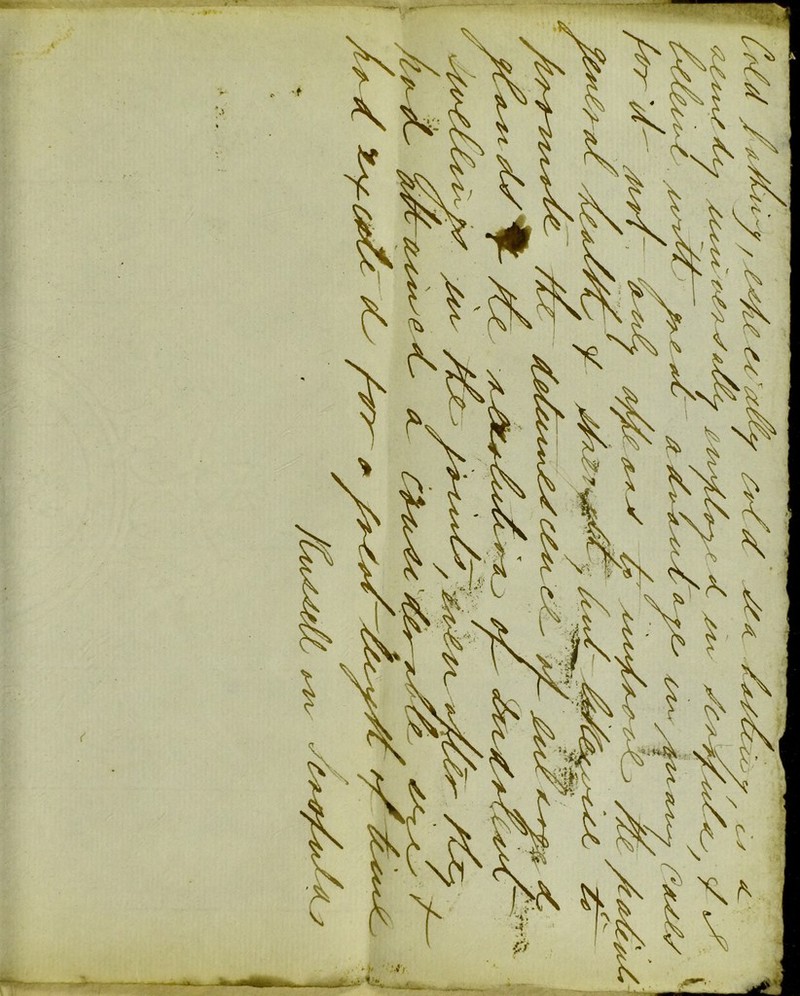 Cold bathing, especially cold sea bathing, is a
remedy universally employed in scrofula, & I
beleive with great advantage in many cases
for it not only appears to improve the patients
general health & strength, but likewise to
promote the detumescence of enlarged
glands & the resolution of indolent
swellings in the joints, even after they
had attained a considerable size &
had existed for a great length of time
Russell on Scrofula